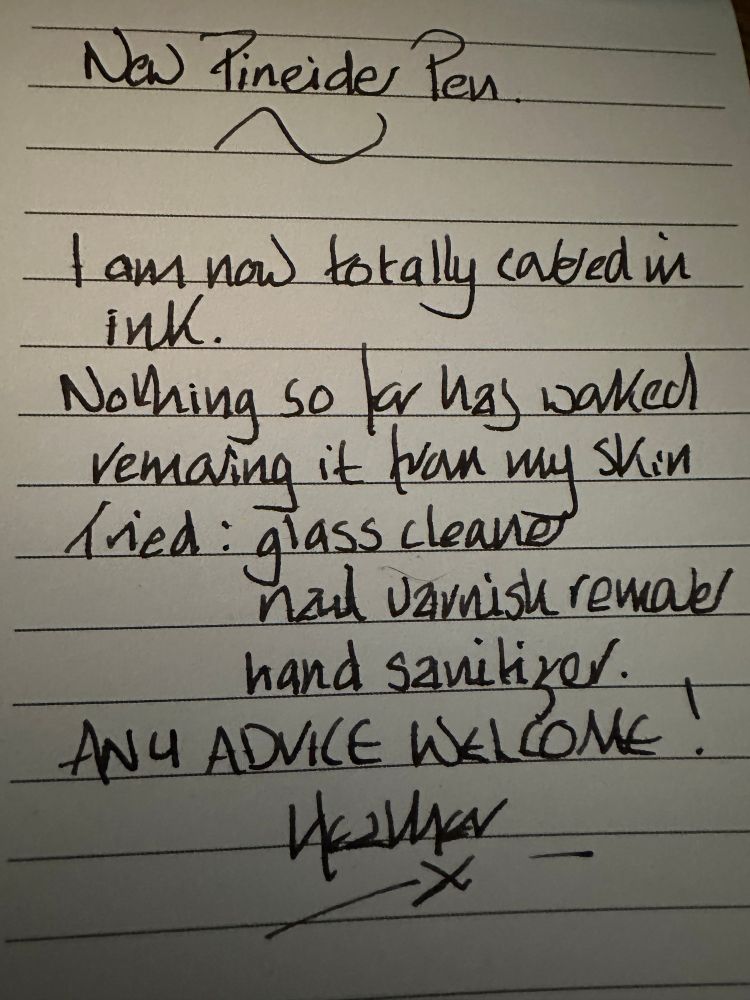 New Pineider Pen.
I am now totally covered in
ink.
Nothing so far has worked
removing it from my skin
Tried : glass cleaner
nail varnish remover
hand sanitizer.
ANY ADVICE WELCOME !
Heather
x